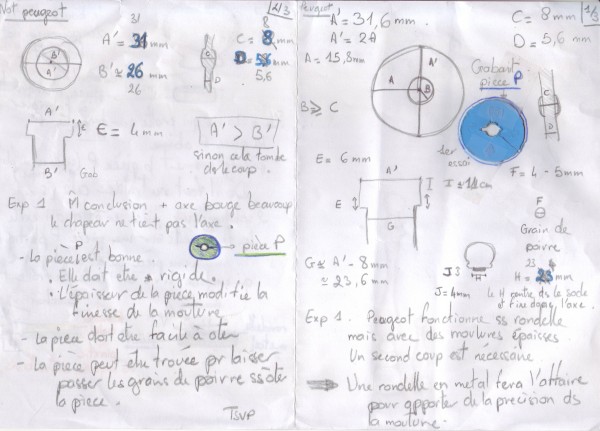 Not peugeot
2/3
31
A' = 31 mm
B' ≃ 26 mm
26
8
C = 8 mm
D = 5,6 mm
5,6
A'
B'
C
D
A'
E
B'
E = 4 mm
A' > B'
sinon cela tombe
de le coup.
Exp 1
conclusion + axe bouge beaucoup
le chapeau ne tient pas l'axe.
- La pièce P est bonne.
→ pièce P
. Elle doit être rigide.
. L'épaisseur de la pièce modifie la
finesse de la mouture
- La pièce doit être facile à ôter
- La pièce peut être trouée pr laisser
passer les grains de poivre ss ôter
la pièce.
TSVP
Peugeot
1/3
A' = 31,6 mm.
A' = 28
A = 15,8 mm
C = 8 mm
D = 5,6 mm
A'
A
B
B ≥ C
Gabarit
pièce P
C
D
1er
essai
E = 6 mm
F = 4 - 5 mm
A'
I
E
G
F
Grain de
poivre
G ≤ A' - 8 mm
≃ 23,6 mm
J
H
J = 4 mm
23
H = 23 mm
le H rentre ds le socle
Exp 1. Peugeot fonctionne ss rondelle
mais avec des moutures épaisses.
Un second coup est nécessaire.
⇒ Une rondelle en métal fera l'affaire
pour apporter de la précision ds
la mouture.